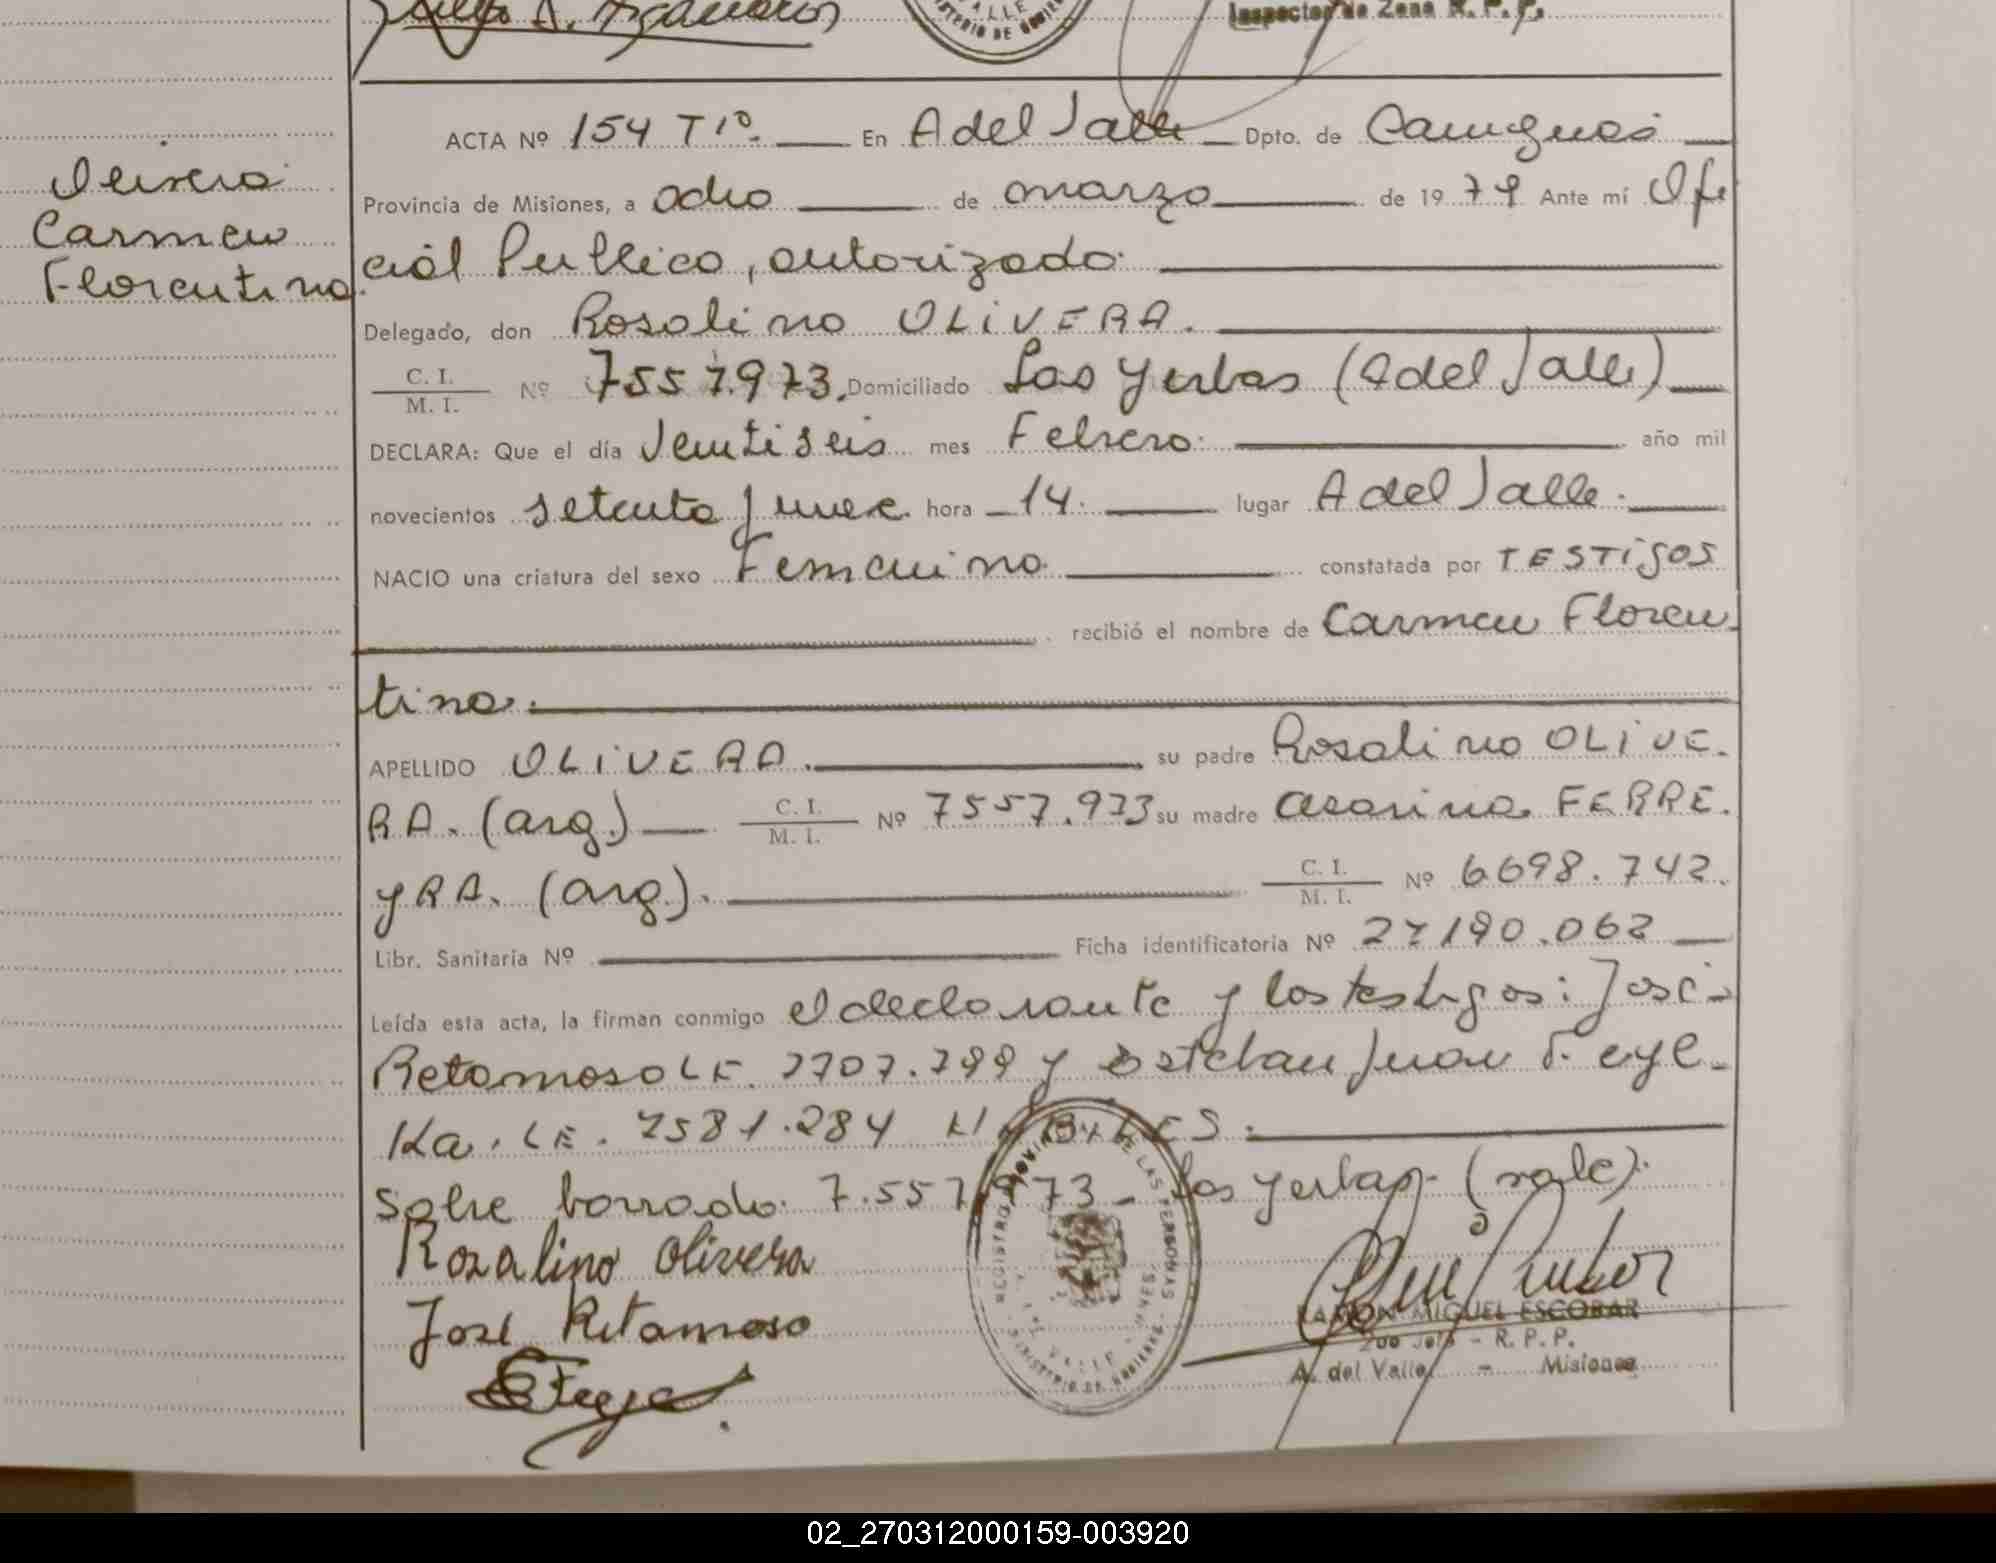 Inspector de Zona R. P. P.
ACTA Nº 154 Tº 1º. En A del Valle Dpto. de Cainguas
Olivera
Carmen
Florentina.
Provincia de Misiones, a ocho de marzo de 1979 Ante mí Ofi
cial Publico, autorizado.
Delegado, don Rosalino OLIVERA.
C. I.
M. I. Nº 7557.973. Domiciliado Las Yerbas (A del Valle)
DECLARA: Que el día Ventiseis mes Febrero. año mil
novecientos setenta y nueve hora 14. lugar A del Valle.
NACIO una criatura del sexo Femenino constatada por TESTIGOS
recibió el nombre de Carmen Floren
tina.
APELLIDO OLIVERA. su padre Rosalino OLIVE.
RA. (arg.) C. I.
M. I. Nº 7557.973 su madre FERRE.
yRA. (arg.). C. I.
M. I. Nº 6698.742.
Libr. Sanitaria Nº Ficha identificatoria Nº 27190.062
Leída esta acta, la firman conmigo el declarante y los testigos: José
Retamoso LE. y Esteban Juan Feye-
Ka. LE. 7581.284 HABILES.
Sobre borrado: 7.557.973 - Las Yerbas. (vale).
Rozalino Olivera
José Retamoso
EFeye
REGISTRO PROVINCIAL DE LAS PERSONAS
RAMON MIGUEL ESCOBAR
2do Jefe - R. P. P.
A. del Valle - Misiones
02_270312000159-003920